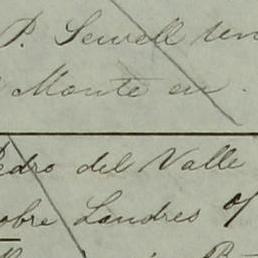 P. Sewell
Monte en
Pedro del Valle
sobre Londres